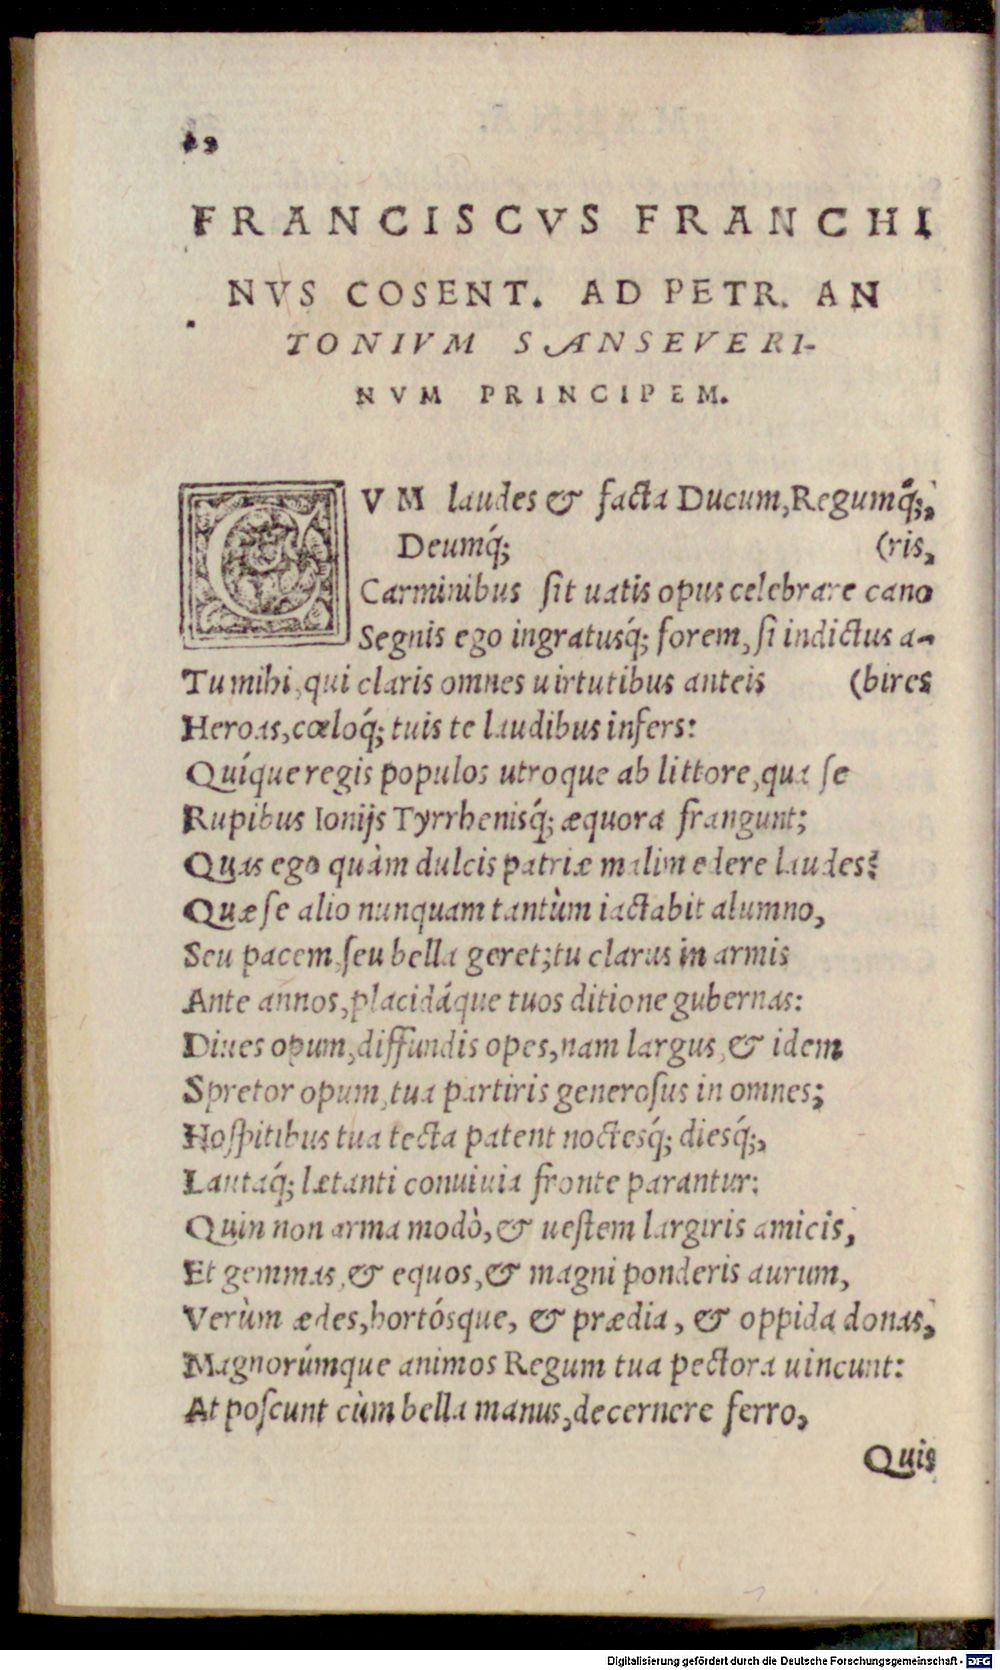 FRANCISCVS FRANCHI
NVS COSENT. AD PETR. AN
TONIVM SANSEVERI-
NVM PRINCIPEM.
CVM laudes & facta Ducum, Regumq́;,
Deumq́; (ris,
Carminibus sit uatis opus celebrare cano
Segnis ego ingratusq́; forem, si indictus a-
Tu mihi, qui claris omnes uirtutibus anteis (bires
Heroas, cœloq́; tuis te laudibus infers:
Quíque regis populos utroque ab littore, qua se
Rupibus Ionijs Tyrrhenisq́; æquora frangunt;
Quas ego quàm dulcis patriæ malim edere laudes?
Quæ se alio nunquam tantùm iactabit alumno,
Seu pacem, seu bella geret; tu clarus in armis
Ante annos, placidáque tuos ditione gubernas:
Diues opum, diffundis opes, nam largus, & idem
Spretor opum, tua partiris generosus in omnes;
Hospitibus tua tecta patent noctesq́; diesq́;,
Lautaq́; lætanti conuiuia fronte parantur:
Quin non arma modò, & uestem largiris amicis,
Et gemmas, & equos, & magni ponderis aurum,
Verùm ædes, hortósque, & prædia, & oppida donas,
Magnorúmque animos Regum tua pectora uincunt:
At poscunt cùm bella manus, decernere ferro,
Quis
Digitalisierung gefördert durch die Deutsche Forschungsgemeinschaft - DFG